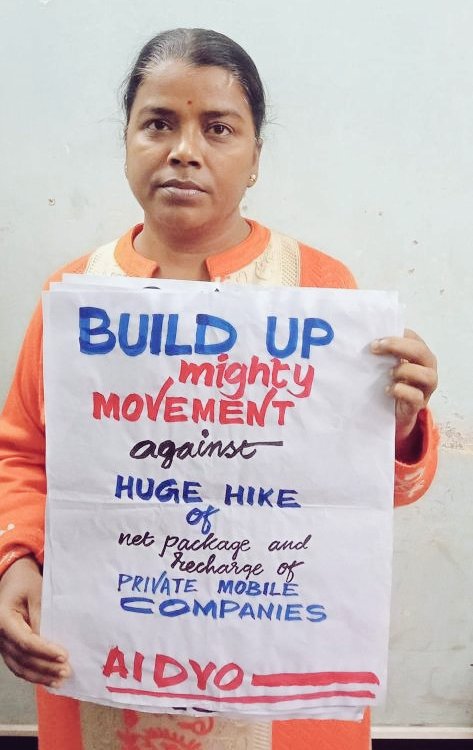 BUILD UP
mighty
MOVEMENT
against
HUGE HIKE
of
net package and
recharge of
PRIVATE MOBILE
COMPANIES
AIDYO